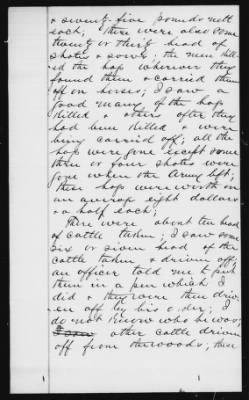 & seventy five pounds nett
each, there were also some
twenty or thirty head of
shotes & sows; the men kill-
ed the hogs wherever they
found them & carried them
off on horses; I saw a
good many of the hogs
killed & others after they
had been killed & were
being carried off; all the
hogs were gone except some
three or four shotes were
gone when the Army left;
these hogs were worth on
an average eight dollars
& a half each;
There were about ten head
of cattle taken; I saw some
six or seven head of the
cattle taken & driven off;
an officer told me to put
them in a pen which I
did & they were then driv-
en off by his order; I
do not know who he was;
I saw other cattle driven
off from the woods; these